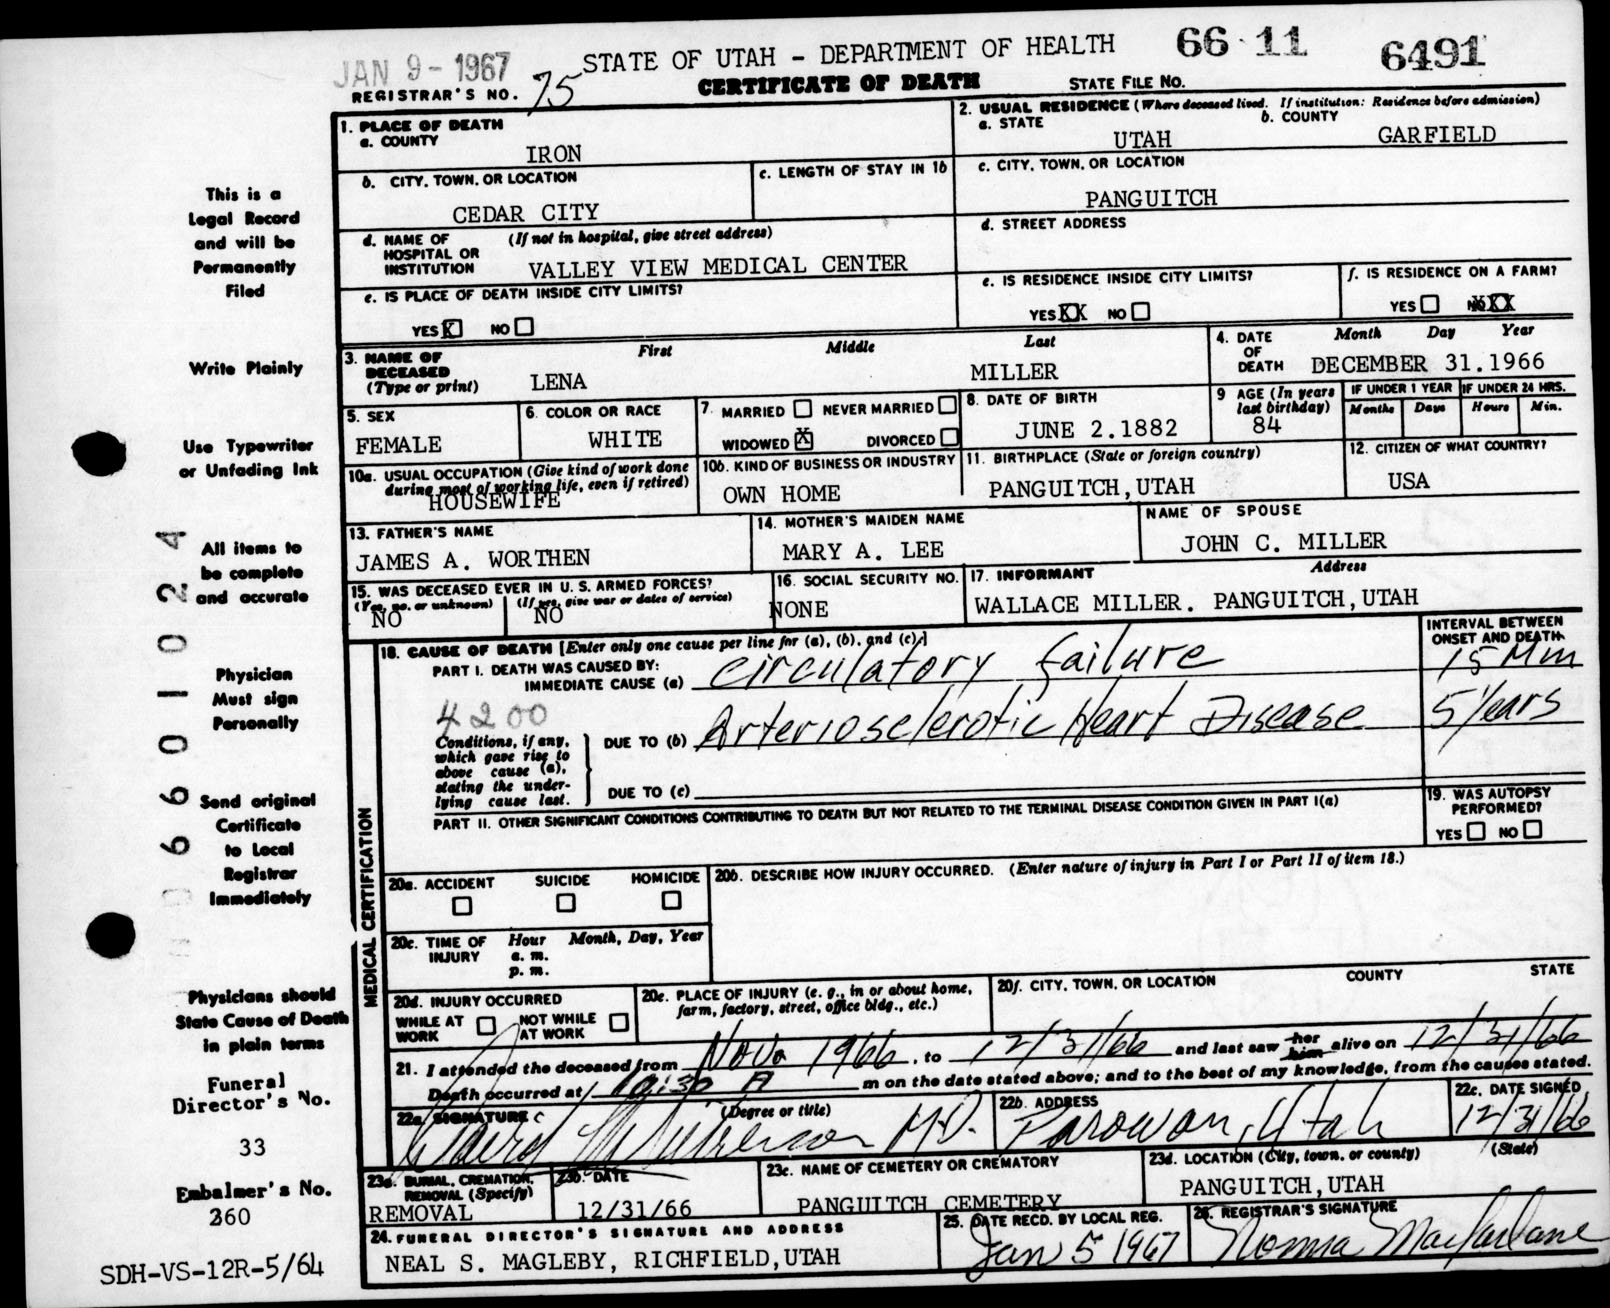 JAN 9 - 1967
STATE OF UTAH - DEPARTMENT OF HEALTH
66 11
6491
REGISTRAR'S NO. 75
CERTIFICATE OF DEATH
STATE FILE NO.
1. PLACE OF DEATH
a. COUNTY
IRON
2. USUAL RESIDENCE (Where deceased lived. If institution: Residence before admission)
a. STATE
UTAH
b. COUNTY
GARFIELD
b. CITY, TOWN, OR LOCATION
CEDAR CITY
c. LENGTH OF STAY IN 1b
c. CITY, TOWN, OR LOCATION
PANGUITCH
d. NAME OF HOSPITAL OR INSTITUTION
(If not in hospital, give street address)
VALLEY VIEW MEDICAL CENTER
d. STREET ADDRESS
e. IS PLACE OF DEATH INSIDE CITY LIMITS?
YES X NO
e. IS RESIDENCE INSIDE CITY LIMITS?
YES XX NO
f. IS RESIDENCE ON A FARM?
YES NO XXX
3. NAME OF DECEASED (Type or print)
First
LENA
Middle
Last
MILLER
4. DATE OF DEATH
Month Day Year
DECEMBER 31.1966
5. SEX
FEMALE
6. COLOR OR RACE
WHITE
7. MARRIED NEVER MARRIED
WIDOWED X DIVORCED
8. DATE OF BIRTH
JUNE 2.1882
9 AGE (In years last birthday)
84
IF UNDER 1 YEAR
Months Days
IF UNDER 24 HRS.
Hours Min.
10a. USUAL OCCUPATION (Give kind of work done during most of working life, even if retired)
HOUSEWIFE
10b. KIND OF BUSINESS OR INDUSTRY
OWN HOME
11. BIRTHPLACE (State or foreign country)
PANGUITCH, UTAH
12. CITIZEN OF WHAT COUNTRY?
USA
13. FATHER'S NAME
JAMES A. WORTHEN
14. MOTHER'S MAIDEN NAME
MARY A. LEE
NAME OF SPOUSE
JOHN C. MILLER
15. WAS DECEASED EVER IN U. S. ARMED FORCES?
(Yes, no, or unknown)
NO
(If yes, give war or dates of service)
NO
16. SOCIAL SECURITY NO.
NONE
17. INFORMANT
Address
WALLACE MILLER. PANGUITCH, UTAH
MEDICAL CERTIFICATION
18. CAUSE OF DEATH [Enter only one cause per line for (a), (b), and (c).]
INTERVAL BETWEEN ONSET AND DEATH
PART I. DEATH WAS CAUSED BY:
IMMEDIATE CAUSE (a) Circulatory failure
15 Min
4200
Conditions, if any, which gave rise to above cause (a), stating the underlying cause last.
DUE TO (b) Arteriosclerotic Heart Disease
5 Years
DUE TO (c)
PART II. OTHER SIGNIFICANT CONDITIONS CONTRIBUTING TO DEATH BUT NOT RELATED TO THE TERMINAL DISEASE CONDITION GIVEN IN PART I(a)
19. WAS AUTOPSY PERFORMED?
YES NO
20a. ACCIDENT SUICIDE HOMICIDE
20b. DESCRIBE HOW INJURY OCCURRED. (Enter nature of injury in Part I or Part II of item 18.)
20c. TIME OF INJURY
Hour Month, Day, Year
a. m.
p. m.
20d. INJURY OCCURRED
WHILE AT WORK NOT WHILE AT WORK
20e. PLACE OF INJURY (e. g., in or about home, farm, factory, street, office bldg., etc.)
20f. CITY, TOWN, OR LOCATION COUNTY STATE
21. I attended the deceased from Nov. 1966, to 12/31/66 and last saw her him alive on 12/31/66
Death occurred at 10:30 A m on the date stated above; and to the best of my knowledge, from the causes stated.
22a. SIGNATURE
(Degree or title)
M.D.
22b. ADDRESS
Parowan, Utah
22c. DATE SIGNED
12/31/66
23a. BURIAL, CREMATION, REMOVAL (Specify)
REMOVAL
23b. DATE
12/31/66
23c. NAME OF CEMETERY OR CREMATORY
PANGUITCH CEMETERY
23d. LOCATION (City, town, or county) (State)
PANGUITCH, UTAH
24. FUNERAL DIRECTOR'S SIGNATURE AND ADDRESS
NEAL S. MAGLEBY, RICHFIELD, UTAH
25. DATE RECD. BY LOCAL REG.
Jan 5 1967
26. REGISTRAR'S SIGNATURE
Norma Macfarlane
This is a
Legal Record
and will be
Permanently
Filed
Write Plainly
Use Typewriter
or Unfading Ink
All items to
be complete
and accurate
Physician
Must sign
Personally
Send original
Certificate
to Local
Registrar
Immediately
Physicians should
State Cause of Death
in plain terms
Funeral
Director's No.
33
Embalmer's No.
360
SDH-VS-12R-5/64
06601024